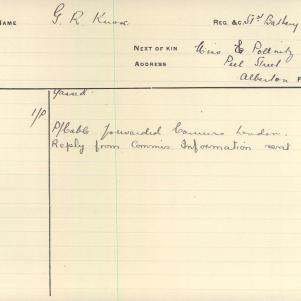 NAME G. R. Knox REG. &C. 51st Battery
NEXT OF KIN Miss E Pollnitz
ADDRESS Peel Street
Alberton
Gassed.
1/P P/Cable forwarded Comvers London.
Reply from Commis. Information sent